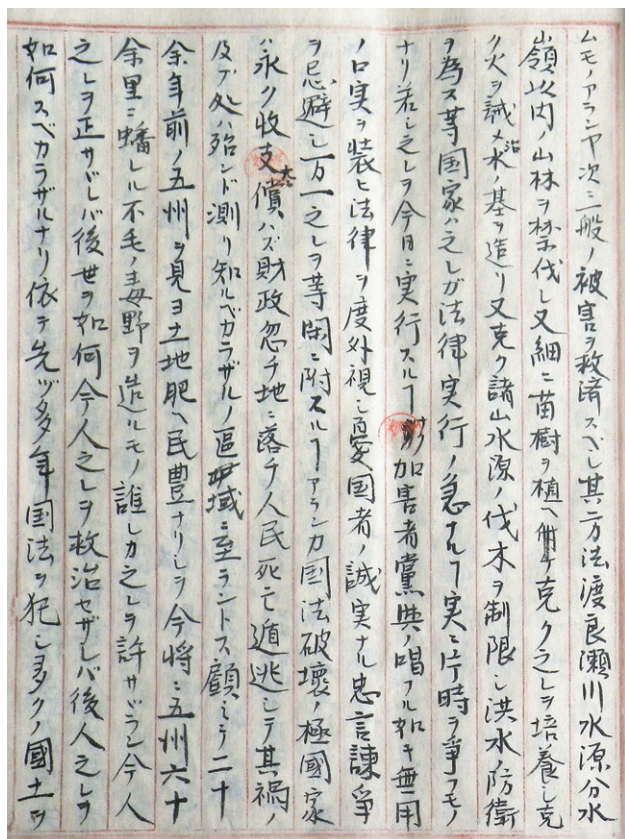 ムモノアランヤ次ニ一般ノ被害ヲ救済スベシ其二方法渡良瀬川水源分水
嶺以内ノ山林ヲ禁伐シ又細ニ苗樹ヲ植ヘ付ケ克ク之レヲ培養シ克
ク火ヲ誡メ治水ノ基ヲ造リ又克ク諸山水源ノ伐木ヲ制限シ洪水ノ防衛
ヲ為ス等国家ハ之レガ法律実行ノ急ナルヿ実ニ片時ヲ争フモノ
ナリ若シ之レヲ今日ニ実行スルヿナク加害者黨與ノ唱フル如キ無用
ノ口実ヲ装ヒ法律ヲ度外視シ憂国者ノ誠実ナル忠言諫争
ヲ忌避シ万一之レヲ等閑ニ附スルヿアランカ國法破壊ノ極國家
ハ永ク收支大ニ償ハズ財政忽チ地ニ落チ人民死亡遁逃シテ其禍ノ
及ブ処ノ殆ンド測リ知ルベカラザルノ區域ニ至ラントス顧ミテ二十
余年前ノ五州ヲ見ヨ土地肥ヘ民豊ナリシヲ今将ニ五州六十
余里ニ蟠レル不毛ノ毒野ヲ造ルモノ誰レカ之レヲ許サヾラン今人
之レヲ正サヾレバ後世ヲ如何今人之レヲ救治セザレバ後人之レヲ
如何スベカラザルナリ依テ先ヅ多年国法ヲ犯シ多クノ國土ヲ